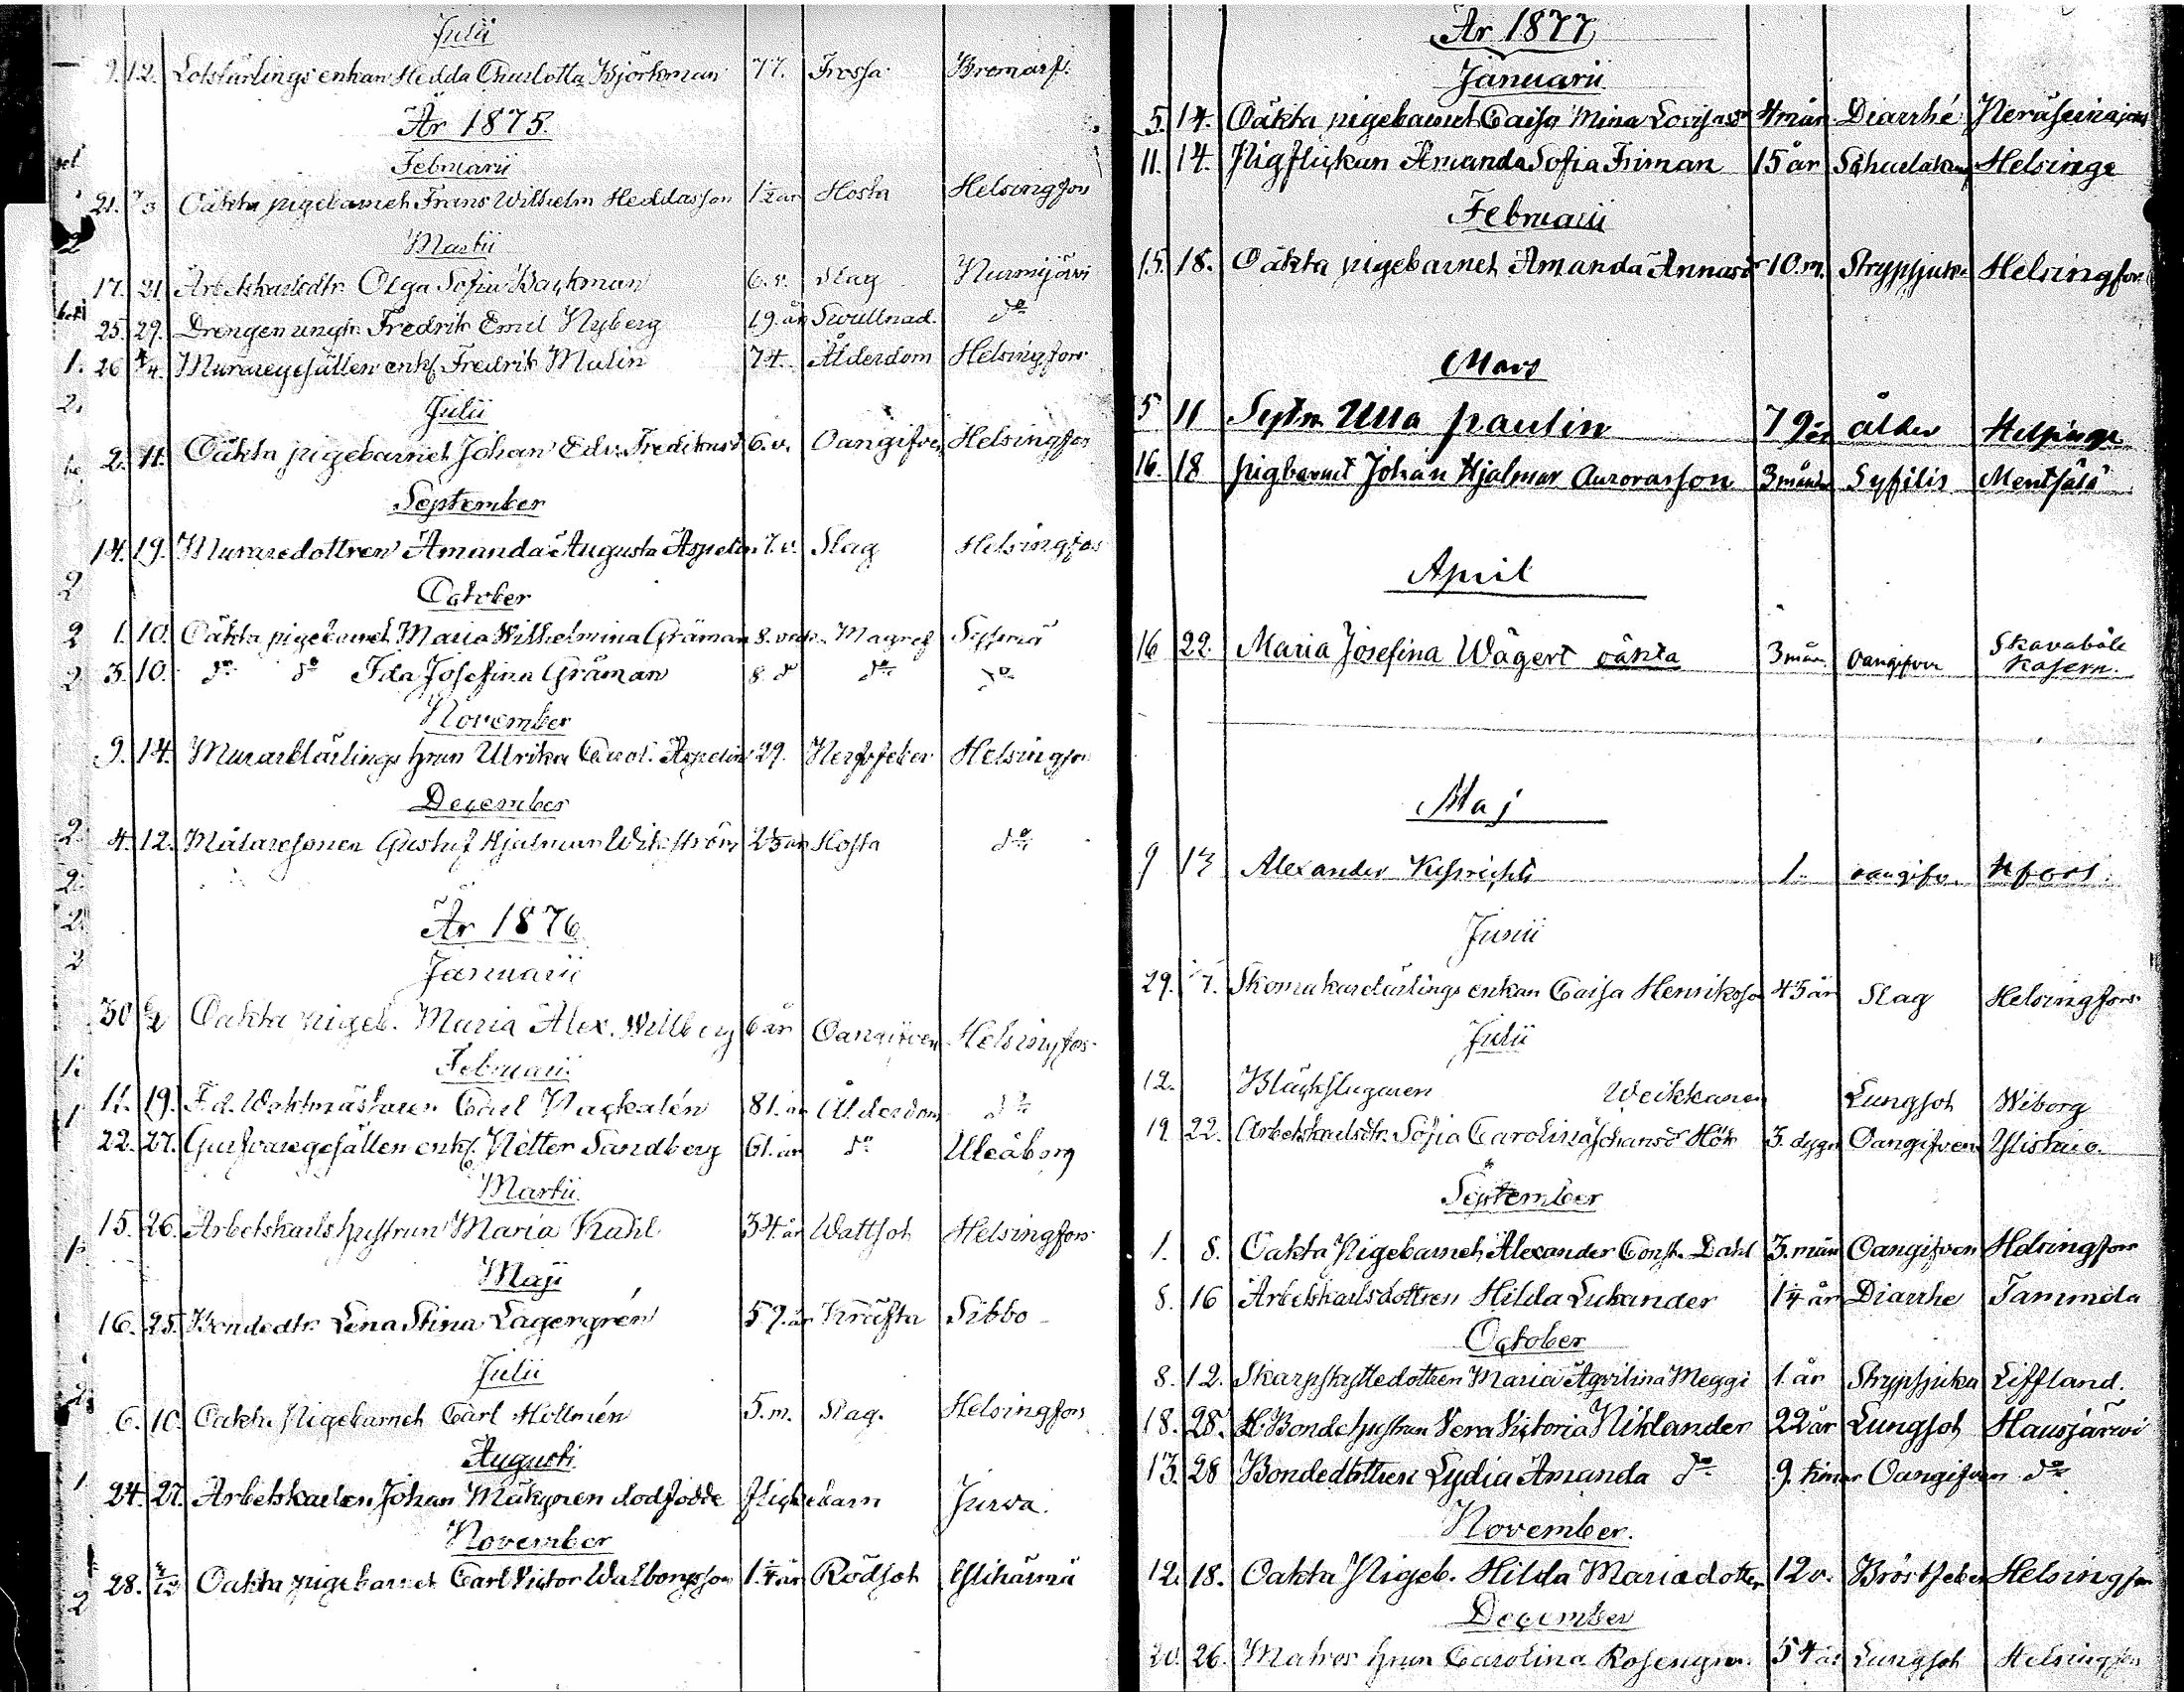 Julii
9. 12. Lotslärlings enkan Hedda Charlotta Björkman 77. Frossa Bromarf.
År 1875.
Februarii
21. 7/3 Oäkta pigebarnet Frans Wilhelm Heddasson 1½ år Hosta Helsingfors
Martii
17. 21. Arbetskarlsdtr. Olga Sofia Backman 6. v. Slag Nurmijärvi
25. 29. Drengen ungk. Fredrik Emil Nyberg 19. år Swullnad. do
26 4/4. Muraregesällen enkl. Fredrik Malin 74. Ålderdom Helsingfors
Julii
2. 11. Oäkta pigebarnet Johan Edv. 6. v. Oangifven Helsingfors
September
14. 19. Muraredottren Amanda Augusta Aspelin 7. v. Slag Helsingfors
October
1. 10. Oäkta pigebarnet Maria Wilhelmina Gråman 8. Magref Sysmä
3. 10. do do Ida Josefina Gråman 8. d do do
November
9. 14. Murarelärlings hrun Ulrika Carol. Aspelin 29. Nerffeber Helsingfors
December
4. 12. Målaresonen Gustuf Hjalmar Wikström Hosta do
År 1876
Januarii
30 6/2 Oäkta pigeb. Maria Alex. Willberg 6 år Oangifven Helsingfors
Februarii
11. 19. F.d. Waktmästaren Carl Nackalén 81. år Ålderdom do
22. 27. Garfvaregesällen enkl. Petter Sandberg 61. år do Uleåborg
Martii
15. 26. Arbetskarls hustrun Maria Kahl 34. år Wattsot Helsingfors
Maji
16. 25. Bondedtr. Lena Stina Lagergrén 59. år Kräfta Sibbo
Julii
6. 10. Oäkta Pigebarnet Carl Hillmén 5. m. Slag. Helsingfors
Augusti
24. 27. Arbetskarlen Johan Mäkynen dödfödde flickebarn Jurva.
November
28. Oäkta pigebarnet Carl Victor Walborgsson 1¼ år Rödsot Ylihärmä
År 1877
Januarii
5. 14. Oäkta pigebarnet Caisa Mina 4 mån Diarrhé Peräseinäjoki
11. 14. Pigflickan Amanda Sofia Friman 15 år Helsinge
Februarii
15. 18. Oäkta pigebarnet Amanda Annasdr 10. m. Strypsjuka Helsingfors
Mars
5 11 Sytm Ulla Paulin 79 år ålder Helsinge
16. 18 Pigbarnet Johan Hjalmar Aurorasson 3 månader Syfilis Mentsälä
April
16 22. Maria Josefina Wägert oäkta 3 mån. oangifven Skavaböle Kasern.
Maj
9 13 Alexander 1. oangifv. Hfors.
Junii
29. 7. Skomakarelärlings enkan Caisa Henriksson 45 år Slag Helsingfors
Julii
12. Bläckslagaren Weikkanen Lungsot Wiborg
19 22. Arbetskarlsdtr. Sofia Carolina Johansd Hök 3. dygn Oangifven Ylistaro.
September
1. 8. Oäkta Pigebarnet Alexander Const. Dahl 3. mån Oangifven Helsingfors
8. 16 Arbetskarlsdottren Hilda Lukander 1¼ år Diarrhe Tammela
October
8. 12. Skarpskyttedottren Maria Aqvilina Meggi 1. år Strypsjuka Liffland.
18. 28. H. Bondehustrun Vera Victoria Niklander 22 år Lungsot Hausjärwi
13. 28 Bondedottren Lydia Amanda do 9. timar Oangifven do
November.
12. 18. Oäkta Pigeb. Hilda Mariadotter 12 v. Bröstfeber Helsingfors
December
20. 26. Matros hrun Carolina Rosengren 54 år Lungsot Helsingfors